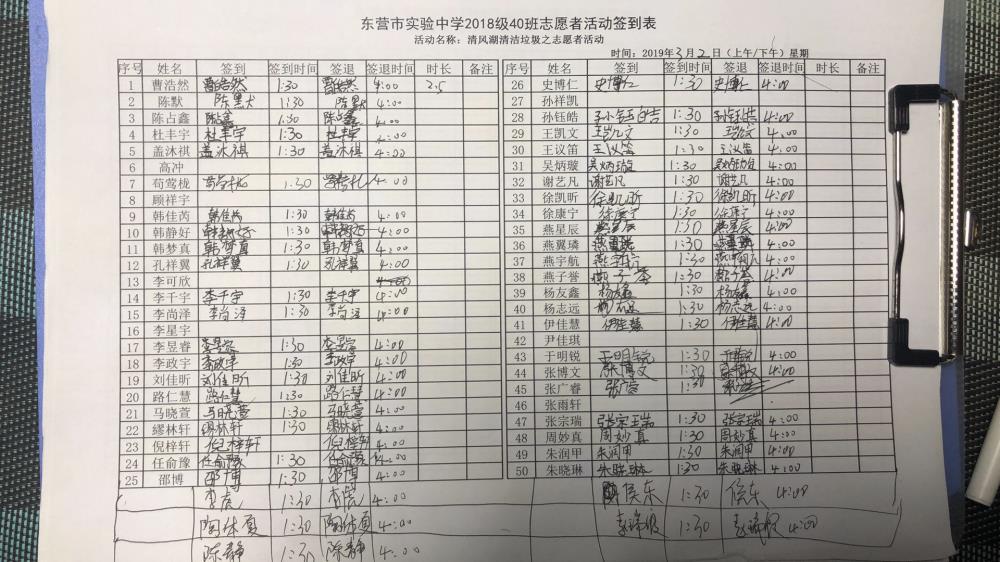 东营市实验中学2018级40班志愿者活动签到表
活动名称：清风湖清洁垃圾之志愿者活动
时间：2019年3月2日（上午/下午）星期
序号 姓名 签到 签到时间 签退 签退时间 时长 备注 序号 姓名 签到 签到时间 签退 签退时间 时长 备注
1 曹浩然 曹浩然 1:30 曹浩然 4:00 2.5 26 史博仁 史博仁 1:30 史博仁 4:00
2 陈默 陈默 1:30 陈默 4:00 27 孙祥凯
3 陈占鑫 1:30 4:00 28 孙钰皓 孙钰皓 1:30 孙钰皓 4:00
4 杜丰宇 杜丰宇 1:30 杜丰宇 4:00 29 王凯文 王凯文 1:30 王凯文 4:00
5 盖沐祺 盖沐祺 1:30 盖沐祺 4:00 30 王议笛 王议笛 1:30 王议笛 4:00
6 高冲 31 吴炳璇 吴炳璇 1:30 4:00
7 荀莺栊 1:30 4:00 32 谢艺凡 谢艺凡 1:30 谢艺凡 4:00
8 顾祥宇 33 徐凯昕 徐凯昕 1:30 徐凯昕 4:00
9 韩佳芮 韩佳芮 1:30 韩佳芮 4:00 34 徐康宁 徐康宁 1:30 徐康宁 4:00
10 韩静好 1:30 4:00 35 燕星辰 燕星辰 1:30 燕星辰 4:00
11 韩梦真 韩梦真 1:30 韩梦真 4:00 36 燕翼璘 1:30 4:00
12 孔祥翼 孔祥翼 1:30 孔祥翼 4:00 37 燕宇航 燕宇航 1:30 4:00
13 李可欣 38 燕子誉 燕子誉 1:30 燕子誉 4:00
14 李千宇 李千宇 1:30 李千宇 4:00 39 杨友鑫 杨友鑫 1:30 杨友鑫 4:00
15 李尚泽 李尚泽 1:30 李尚泽 4:00 40 杨志远 1:30 杨志远 4:00
16 李星宇 41 伊佳慧 伊佳慧 1:30 伊佳慧 4:00
17 李昱睿 1:30 4:00 42 尹佳琪
18 李政宇 李政宇 1:30 李政宇 4:00 43 于明锐 于明锐 1:30 于明锐 4:00
19 刘佳昕 刘佳昕 1:30 刘佳昕 4:00 44 张博文 张博文 1:30 4:00
20 路仁慧 路仁慧 1:30 路仁慧 4:00 45 张广睿 张广睿 1:30
21 马晓萱 马晓萱 1:30 马晓萱 4:00 46 张雨轩
22 缪林轩 缪林轩 1:30 缪林轩 4:00 47 张宗瑞 张宗瑞 1:30 张宗瑞 4:00
23 倪梓轩 倪梓轩 倪梓轩 4:00 48 周妙真 周妙真 1:30 周妙真 4:00
24 任俞豫 任俞豫 1:30 任俞豫 4:00 49 朱润甲 朱润甲 1:30 朱润甲 4:00
25 邵博 邵博 1:30 邵博 4:00 50 朱晓琳 朱晓琳 1:30 朱晓琳 4:00
1:30 4:00 侯东 1:30 侯东 4:00
陶休夏 1:30 陶休夏 4:00 1:30 4:00
陈静 1:30 陈静 4:00